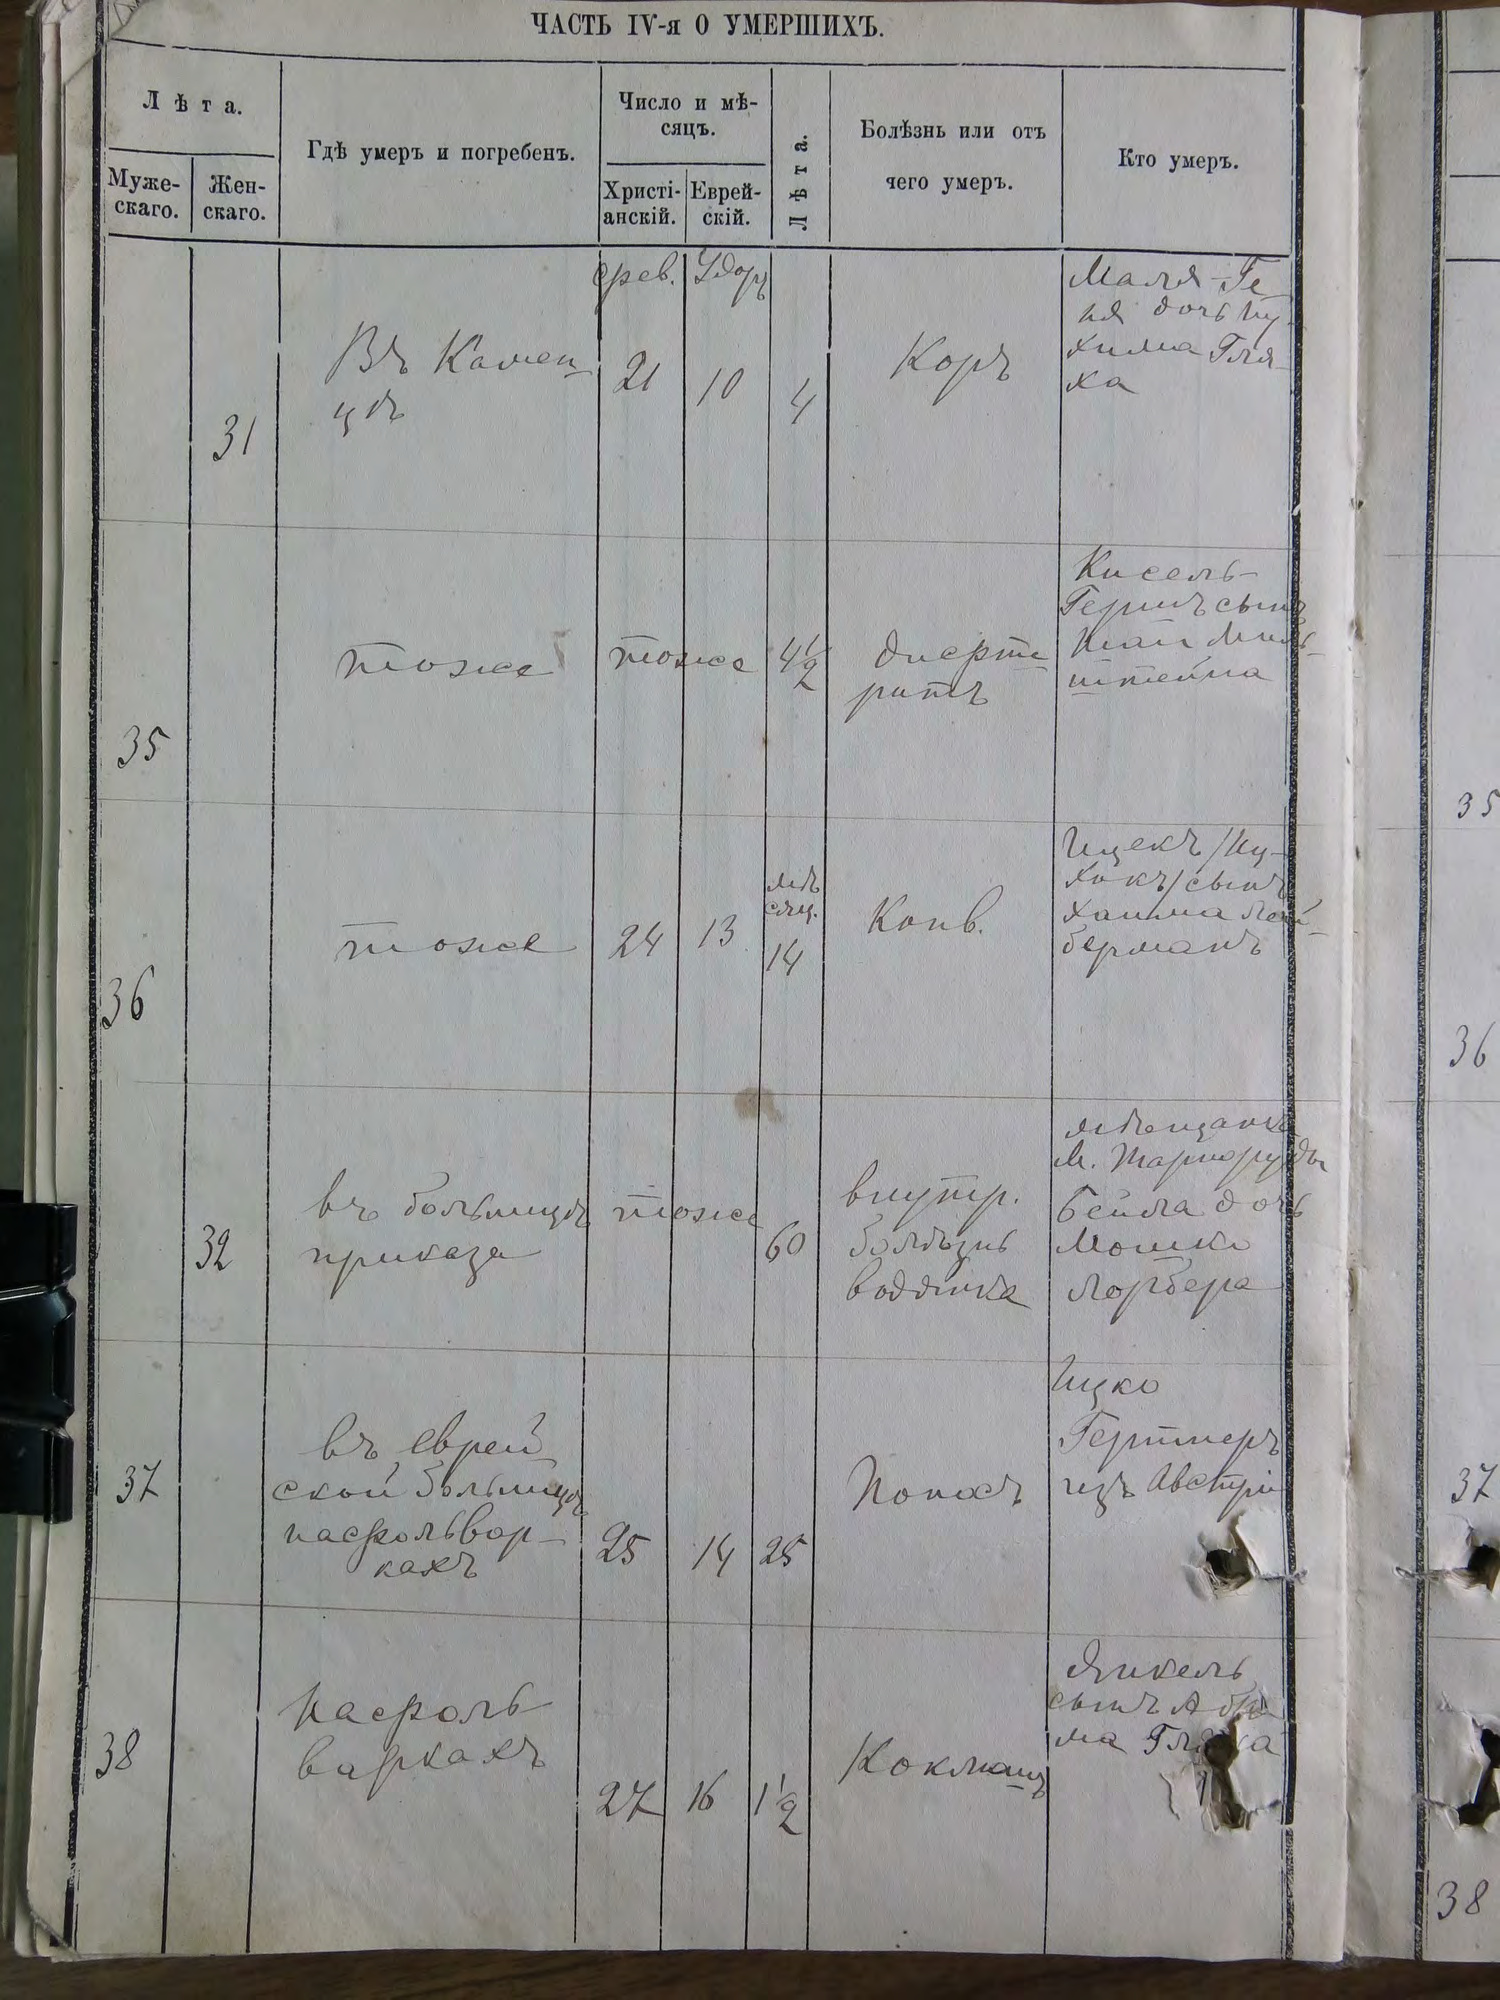 ЧАСТЬ IV-я О УМЕРШИХЪ.
Лѣта.
Муже-
скаго.
Жен-
скаго.
Гдѣ умеръ и погребенъ.
Число и мѣ-
сяцъ.
Христі-
анскій.
Еврей-
скій.
Лѣта.
Болѣзнь или отъ
чего умеръ.
Кто умеръ.
31
Въ Камен-
цѣ
фев.
21
Адоръ
10
4
Коръ
Маля-Ге-
ня дочь Ну-
хима Гля-
ха
35
тоже
тоже
4 1/2
дифте
ритъ
Кисель-
Гершъ сынъ
Миль-
штейна
36
тоже
24
13
мѣ
сяц.
14
Конв.
Ицекъ /Иц-
хокъ/ сынъ
Хаима Лей-
берманъ
32
въ больницѣ
приказа
тоже
60
внутр.
болѣзнь
водянка
мѣщанка
М. Тарноруды
Бейла дочь
Мошка
Лорбера
37
въ еврей
ской больницѣ
на фольвар-
кахъ
25
14
25
Поносъ
Ицко
Гертнеръ
изъ Австріи
38
на фоль
варкахъ
27
16
1 1/2
Коклюшъ
Янкель
сынъ
ма
35
36
37
38